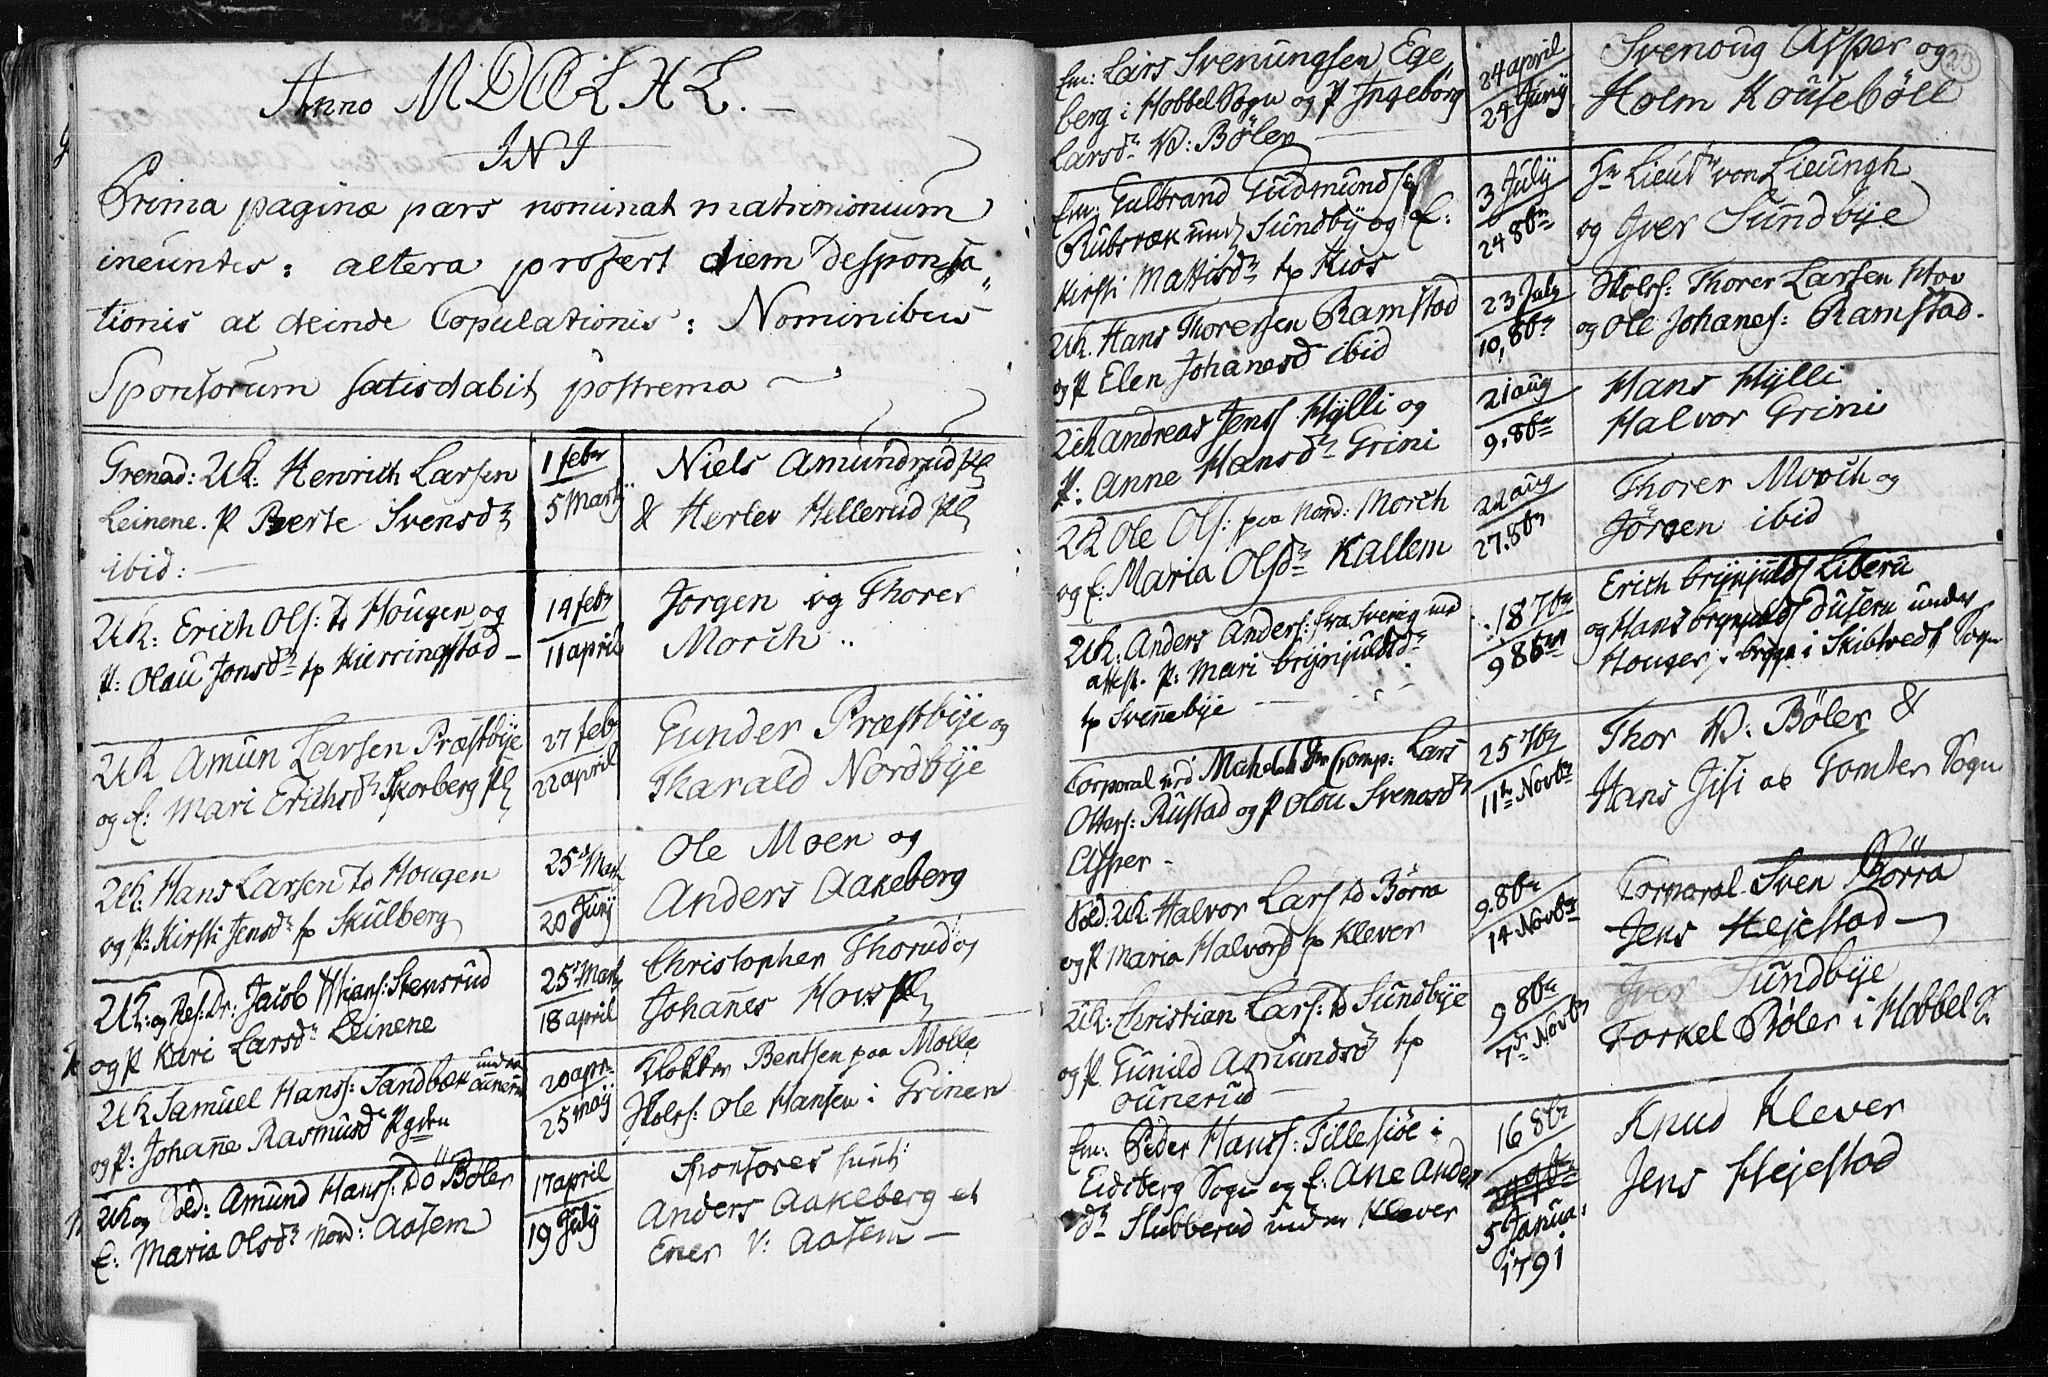 Anno MDCCLXXXX.
INI
Prima paginæ pars nominat matrimonium
ineuntes: altera profert diem Desponsa-
tionis at deinde Copulationis: Nominibus
Sponsorum satisdabit postrema
Grenad: UK: Henrich Larsen
Leinene. P Berte Svensd
ibid:
1 febr
5 Marty
Niels Amundrud Pl
& Herlev Hellerud Pl
UK: Erich Ols: to Hougen og
P: Olau Jonsd tp Kierringstad
14 febr
11 april
Jorgen og Thorer
Morch
UK Amun Larsen Præstbye
og E: Mari Erichsd Skorberg Pl
27 febr
22 april
Gunder Præstbye og
Tharald Nordbye
UK: Hans Larsen to Hougen
og P: Kirsti Jensd tp Skulberg
25 Mart
20 Juny
Ole Moen og
Anders Aakeberg
UK: og Res: Dr: Jacob Hans: Stensrud
og P Kari Larsd Leinene
25 Mart
18 april
Christopher Thorud og
Johanes How Pl
UK Samuel Hanss: Sandbæk under Ounerud
og P: Johanne Rasmusd
20 apr
25 may
Klokker Bentsen paa Molle
Skolrs: Ole Hansen i Grinen
UK og Sold: Amund Hanss: to Böler
E: Maria Olsd Nord: Aasem
17 april
19 July
Sponsores sunt:
Anders Aakeberg et
Ener V: Aasem
23
Em: Lars Svenungsen Ege
berg i Hobbel Sogn og P Ingeborg
Larsd V: Böler
24 april
24 Juny
Svenoug Asper og
Holm Kouseböll
Em: Gulbrand Gudmunds
Rubsræk und Sundby og E:
Kirsti Mattisd tp Kios
3 July
24 8br
Hr Lieut von Lieungh
og Iver Sundbye
UK. Hans Thoresen Ramstad
og P Elen Johanesd ibid
23 July
10, 8br
Skolrs: Thorer Larsen Hov
og Ole Johanes: Ramstad.
UK Andreas Jens Hylli og
P: Anne Hansd Grini
21 aug
9. 8br
Hans Hylli
Halvor Grini
UK Ole Ols: paa Nord: Morch
og E: Maria Olsd Kallem
22 aug
27. 8br
Thorer Morch og
Jörgen ibid
UK: Anders Anders: fra Sverig med
attest. P: Mari brynjuldsd
tp Svenebye
18 7br
9 8br
Erich brynjulds Liberu
og Hans brynjulds Dusern under
Houger i bygge i Skibtvedt Sogn
Corporal ved Comp: Lars
Olters: Rustad og P Olou Svenosd
Asper
25 7br
11 Novbr
Thor V: Böler &
Hans Jisi ae Tomter Sogn
Sold. UK Halvor Lars to Börra
og P Maria Halvorsd tp Klever
9. 8br
14 Novbr
Corporal Sven Börra
Jens Hejestad
UK: Christian Lars: to Sundbye
og P. Gunild Amundsd tp
Ounerud
9 8br
7 Novbr
Iver Sundbye
Torkel Böler i Hobbel S.
Em: Peder Hanss: Tillesiöe i
Eidsberg Sogn og E: Ane Anders
d Slubberud under Klever
16 8br
5 Janua:
1791
Knud Klever
Jens Hejestad